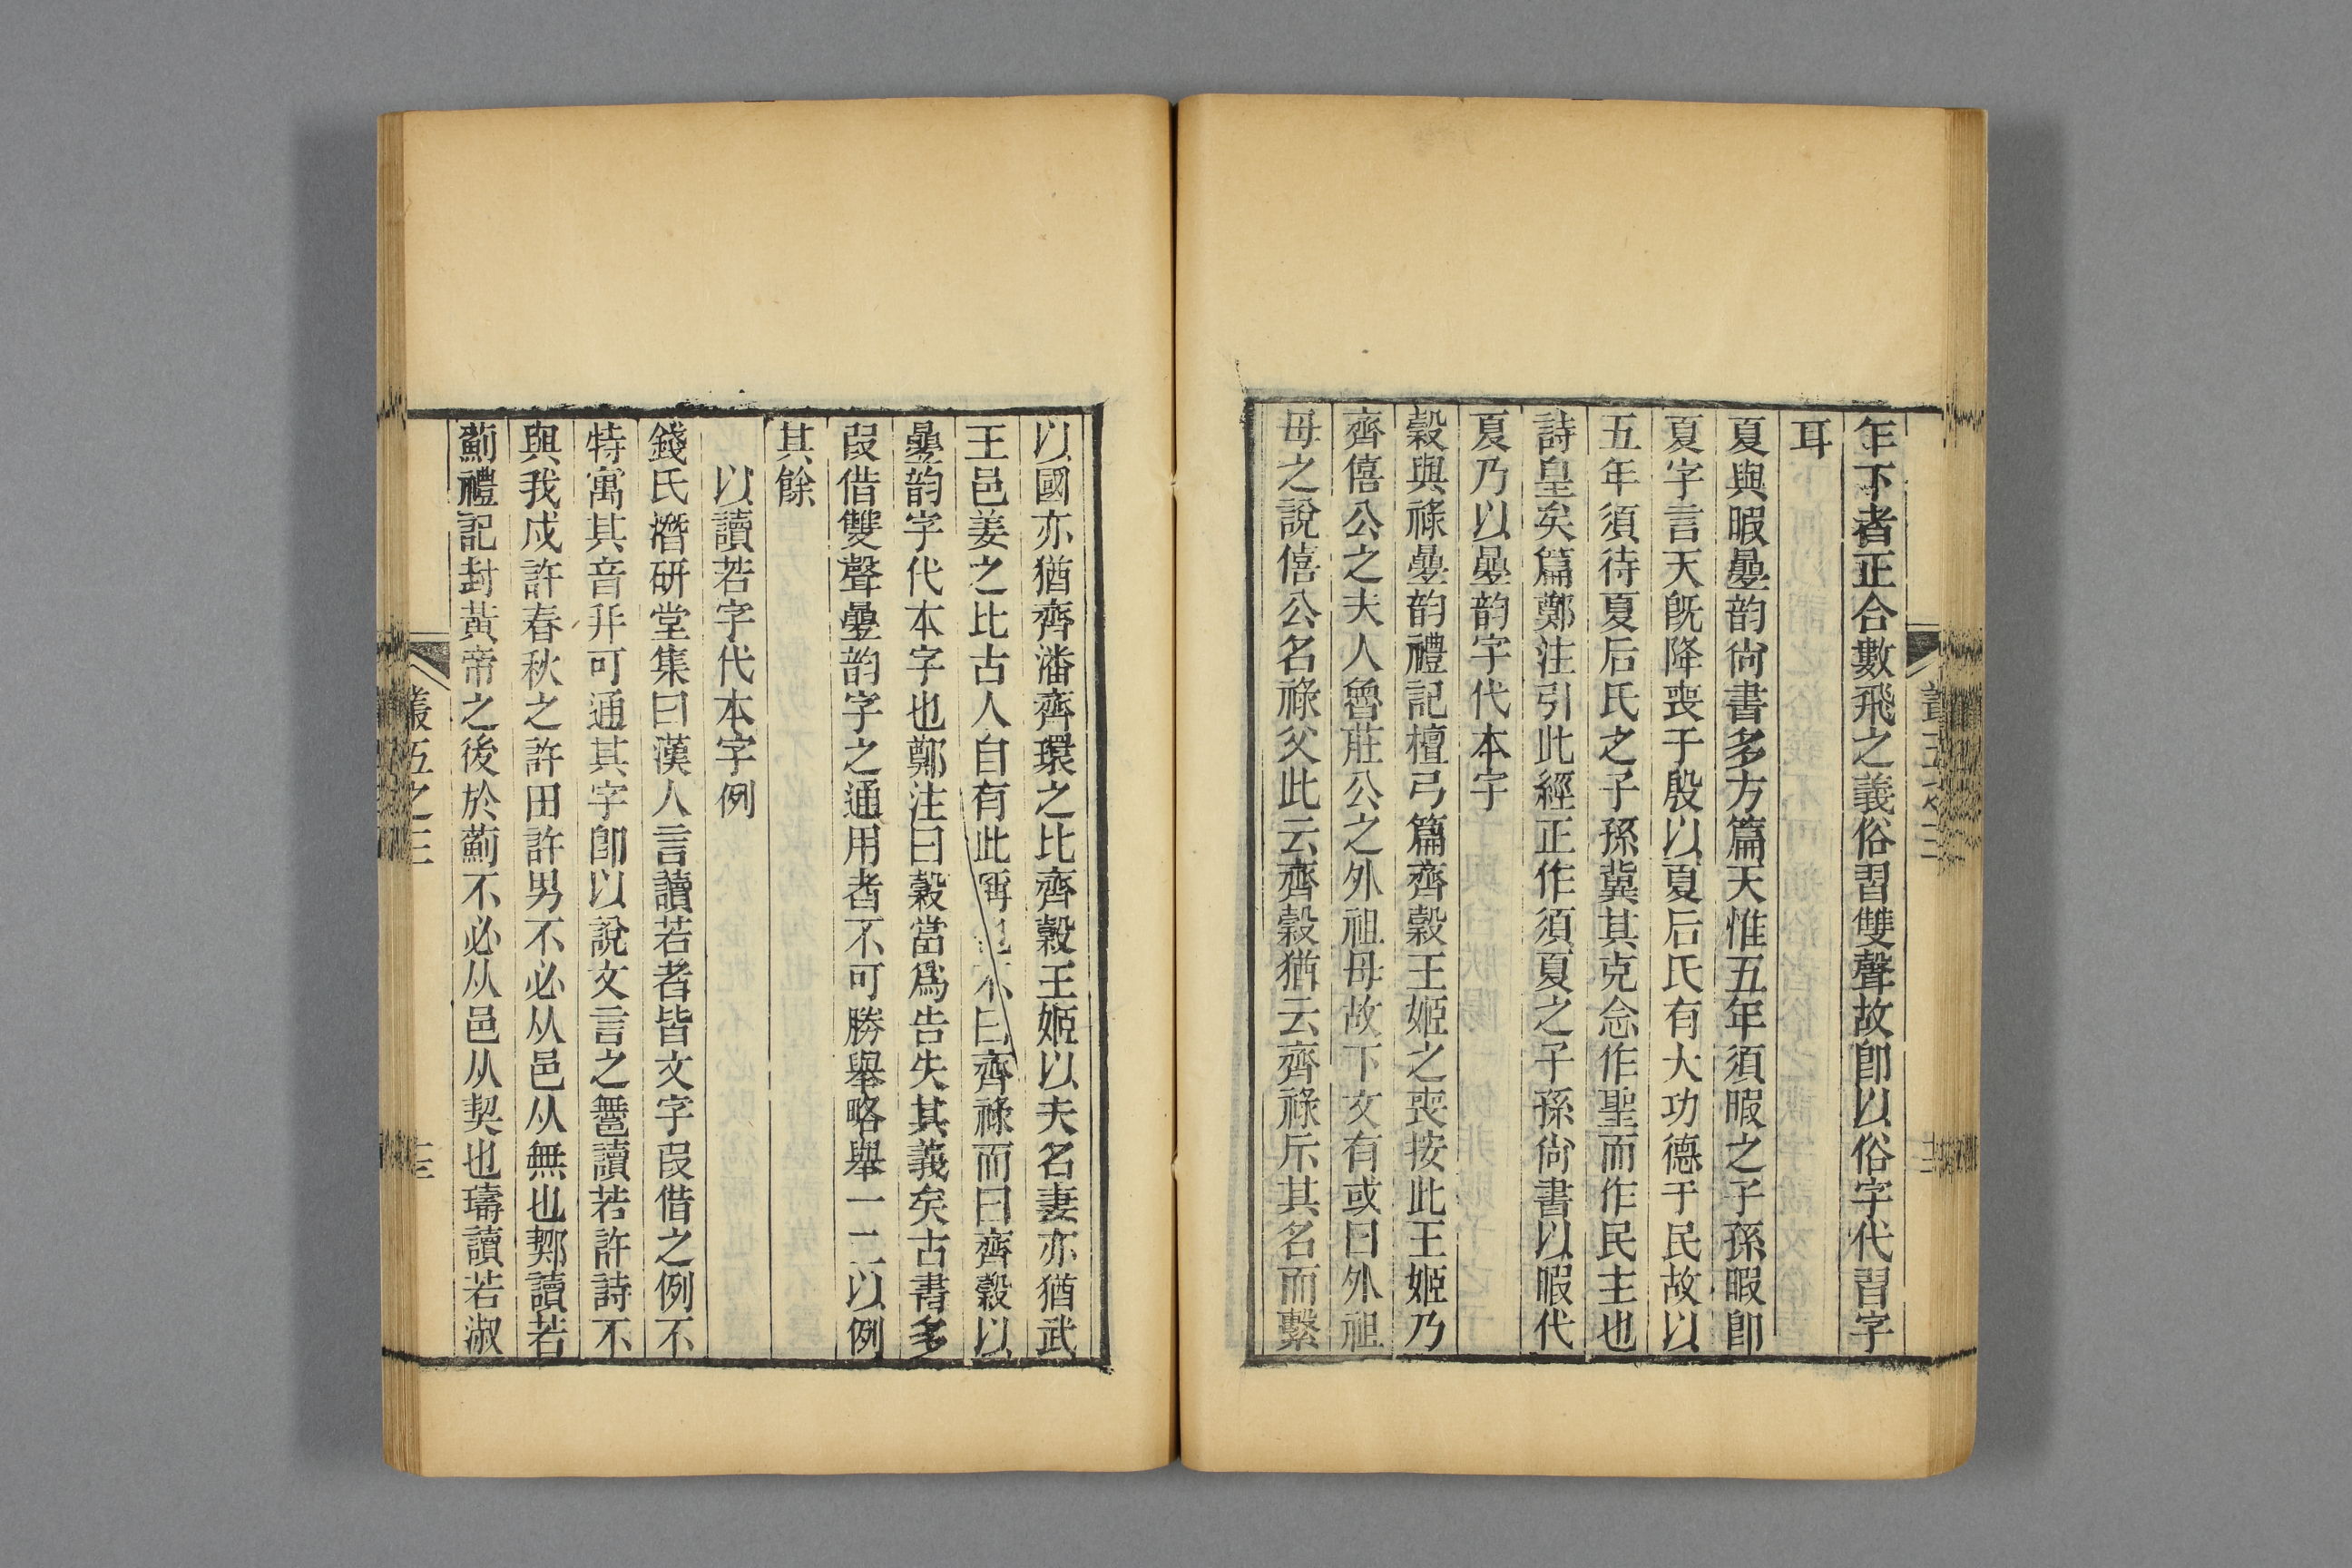 乍下者正合數飛之義俗習雙聲故卽以俗字代習字
耳
夏與暇曡韵尙書多方篇天惟五年須暇之子孫暇卽
夏字言天旣降喪于殷以夏后氏有大功德于民故以
五年須待夏后氏之子孫冀其克念作聖而作民主也
詩皇矣篇鄭注引此經正作須夏之子孫尙書以暇代
夏乃以曡韵字代本字
穀與祿曡韵禮記檀弓篇齊穀王姬之喪按此王姬乃
齊僖公之夫人魯莊公之外祖母故下文有或曰外祖
母之說僖公名祿父此云齊穀猶云齊祿斥其名而繫
以國亦猶齊潘齊環之比齊穀王姬以夫名妻亦猶武
王邑姜之比古人自有此稱也不曰齊祿而曰齊穀以
曡韵字代本字也鄭注曰穀當爲告失其義矣古書多
叚借雙聲曡韵字之通用者不可勝舉略舉一二以例
其餘
以讀若字代本字例
錢氏潛研堂集曰漢人言讀若者皆文字叚借之例不
特寓其音幷可通其字卽以說文言之鄦讀若許詩不
與我戍許春秋之許田許男不必从邑从無也鄭讀若
薊禮記封黃帝之後於薊不必从邑从契也璹讀若淑
叢五之三
十三